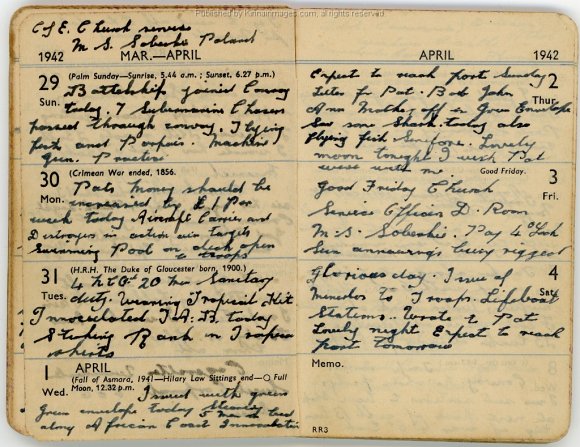 Published by Kirrainimages.com, all rights reserved
C of E. Church service
M.S. Sobeski Poland
1942 MAR.—APRIL
29 (Palm Sunday—Sunrise, 5.44 a.m.; Sunset, 6.27 p.m.)
Sun. Battleship joined Convoy
today. 7 Submarine Chasers
passed through convoy. Flying
fish and Porpois. Machine
Gun. Practise
30 (Crimean War ended, 1856.
Mon. Pats Money should be
increased by £1 Per
week today Aircraft Carrier and
Destroyers in action air targets
Swimming Pool on deck open
to troops
31 (H.R.H. The Duke of Gloucester born, 1900.)
Tues. Sanitary
duty. Wearing Tropical Kit
Innoculated T.A.B. today
Stoking Bank in Tropics
1 APRIL
(Fall of Asmara, 1941—Hilary Law Sittings end—○ Full
Wed. Moon, 12.32 p.m. Issued with green
Green envelope today
along African Coast Innoculation
APRIL 1942
Expect to reach port Sunday
2 Letter for Pat. Bet John
Thur. Ann Mother off in Green Envelope
Saw some Shark today also
flying fish Lovely
moon tonight I wish Pat
were with me
3 Good Friday.
Fri. Good Friday Church
Service Officers D. Room
M.S. Sobeski. Pay
being rigged
4 Glorious day. Issue of
Sat. to Troops. Lifeboat
Stations. Wrote to Pat
Lovely night Expect to reach
port tomorrow
Memo.
RR3